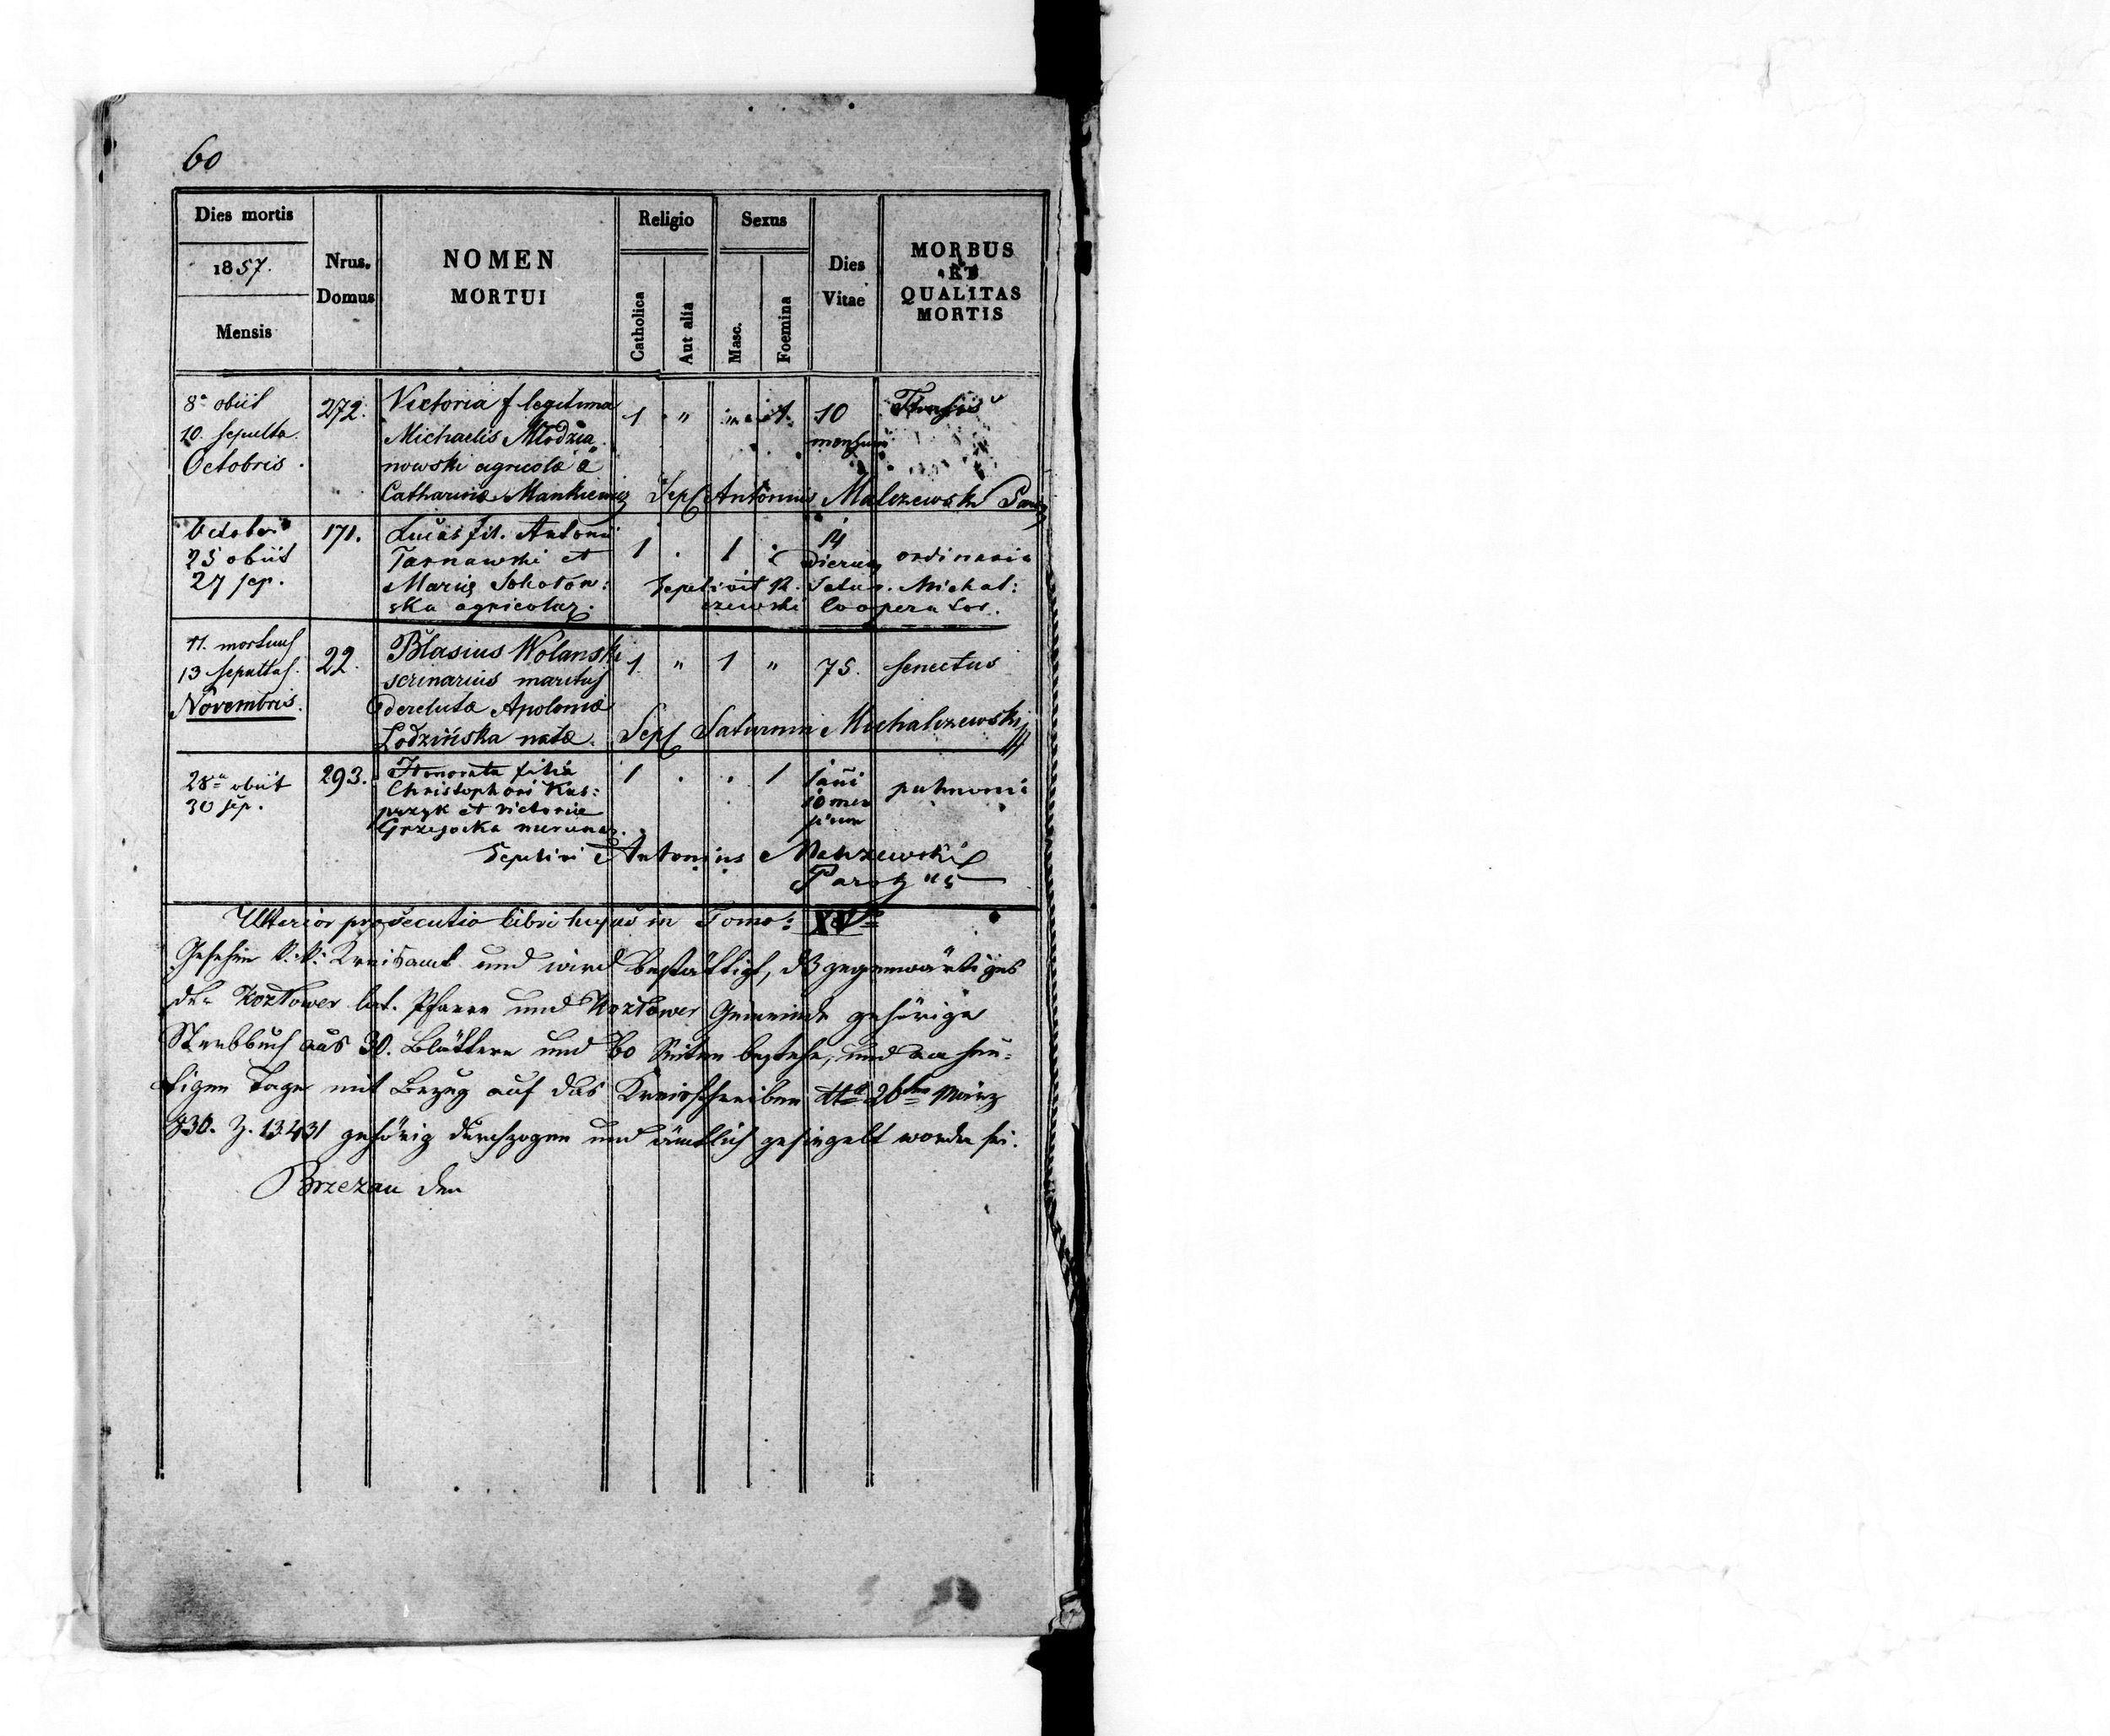 60
Dies mortis
1857.
Mensis
Nrus.
Domus
NOMEN
MORTUI
Religio
Catholica
Aut alia
Sexus
Masc.
Foemina
Dies
Vitae
MORBUS
ET
QUALITAS
MORTIS
8a obiit
10. sepulta
Octobris.
272.
Victoria f legitima
Michaelis Młodzia
nowski agricolæ &
Catharinæ Mankiewicz
1 " " 1.
10
mensium
Tussis
Sepl Antonius Malczewski
Octobri
25 obiit
27 sep.
171.
Lucas fil. Antonii
Tarnawski et
Mariæ Sokołow:
ska agricolar.
1 . 1 .
14
dierum
ordinaria
Sepelivit R. Satur. Michal:
czewski Cooperator.
11. mortuus
13 sepultus.
Novembris.
22.
Błasius Wolanski
scrinarius maritus
derelictæ Apoloniæ
Lodzińska natæ.
1 " 1 "
75.
senectus
Sepl Saturnin Michalczewski
28a obiit
30 sep.
293.
Honorata filia
Christophori Kas:
przyk et Victoriæ
Grzegocka
1 . . 1
1 añi
10 men
sium
pulmoni
Sepelivi Antonius Malczewski
Parochus
Ulterior prosecutio libri hujus in Tomo: XVto
Gesehen k: k: Kreisamt und wird bestättigt, dß gegenwärtiges
der Kozłower lat. Pfarre und Kozłower Gemeinde gehörige
Sterbbuch aus 30. Blättern und 60 Seiten bestehe, und am heu=
tigen Tage mit Bezug auf das Kreisschreiben dto 26ten März
830. Z. 13431 gehörig durchzogen und ämtlich gesiegelt worden sei.
Brzezan den